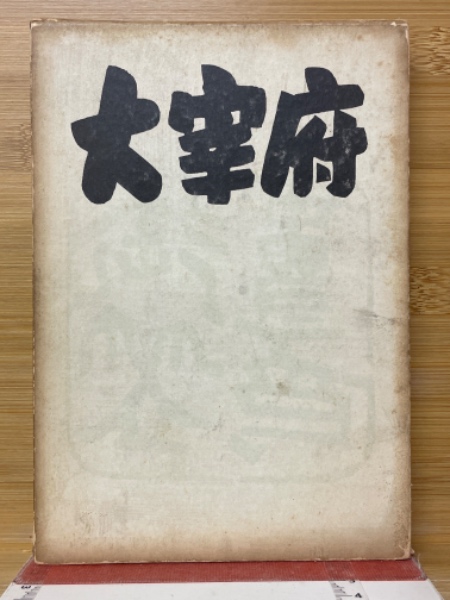 大宰府